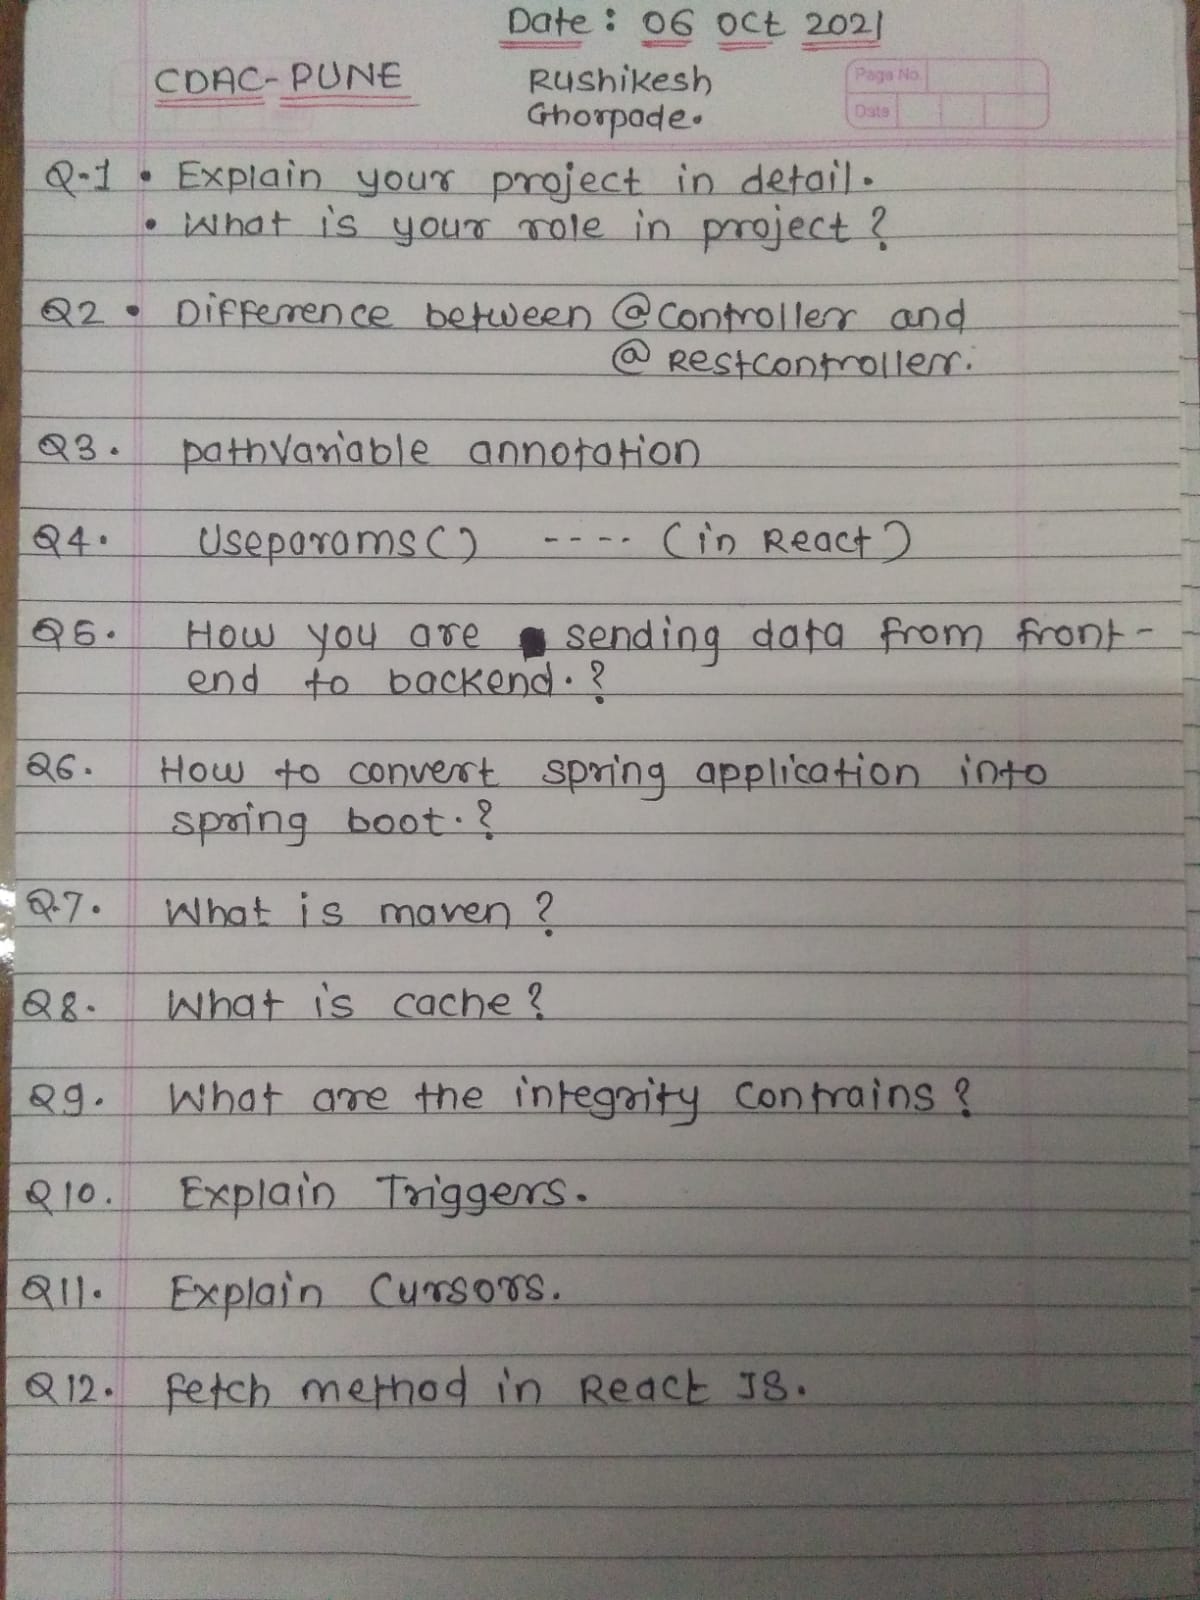 Date : 06 Oct 2021
CDAC-PUNE
Rushikesh
Ghorpade.
Page No.
Date
Q-1 • Explain your project in detail.
• What is your role in project ?
Q2 • Difference between @Controller and
@ RestController.
Q3. pathVariable annotation
Q4. Useparams() ---- (in React)
Q5. How you are sending data from front-
end to backend. ?
Q6. How to convert spring application into
spring boot. ?
Q.7. What is maven ?
Q8. What is cache ?
Q9. What are the integrity Contrains ?
Q10. Explain Triggers.
Q11. Explain Cursors.
Q12. Fetch method in React JS.